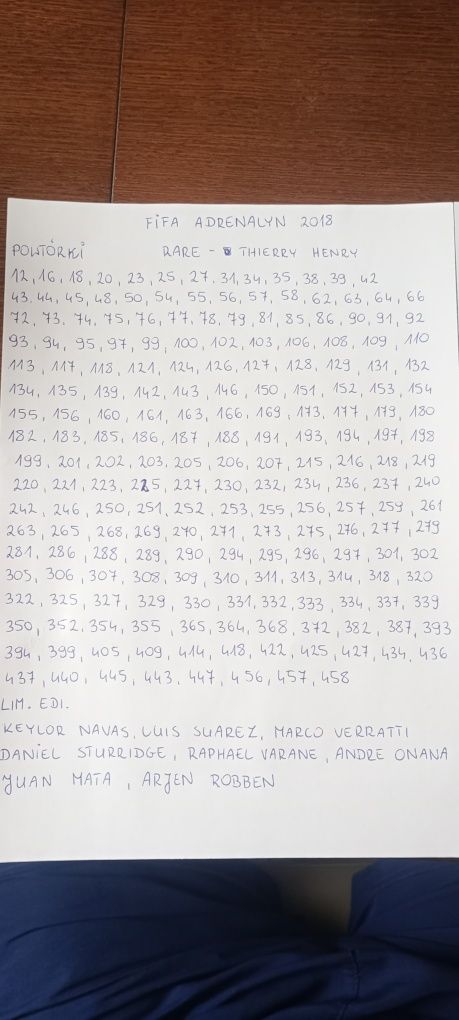 FIFA ADRENALYN 2018
POWTÓRKI RARE - THIERRY HENRY
12, 16, 18, 20, 23, 25, 27, 31, 34, 35, 38, 39, 42
43, 44, 45, 48, 50, 54, 55, 56, 57, 58, 62, 63, 64, 66
72, 73, 74, 75, 76, 77, 78, 79, 81, 85, 86, 90, 91, 92
93, 94, 95, 97, 99, 100, 102, 103, 106, 108, 109, 110
113, 117, 118, 121, 124, 126, 127, 128, 129, 131, 132
134, 135, 139, 142, 143, 146, 150, 151, 152, 153, 154
155, 156, 160, 161, 163, 166, 169, 173, 177, 179, 180
182, 183, 185, 186, 187, 188, 191, 193, 194, 197, 198
199, 201, 202, 203, 205, 206, 207, 215, 216, 218, 219
220, 221, 223, 225, 227, 230, 232, 234, 236, 237, 240
242, 246, 250, 251, 252, 253, 255, 256, 257, 259, 261
263, 265, 268, 269, 270, 271, 273, 275, 276, 277, 279
281, 286, 288, 289, 290, 294, 295, 296, 297, 301, 302
305, 306, 307, 308, 309, 310, 311, 313, 314, 318, 320
322, 325, 327, 329, 330, 331, 332, 333, 334, 337, 339
350, 352, 354, 355, 365, 364, 368, 372, 382, 387, 393
394, 399, 405, 409, 414, 418, 422, 425, 427, 434, 436
437, 440, 445, 443, 447, 456, 457, 458
LIM. EDI.
KEYLOR NAVAS, LUIS SUAREZ, MARCO VERRATTI
DANIEL STURRIDGE, RAPHAEL VARANE, ANDRE ONANA
JUAN MATA, ARJEN ROBBEN